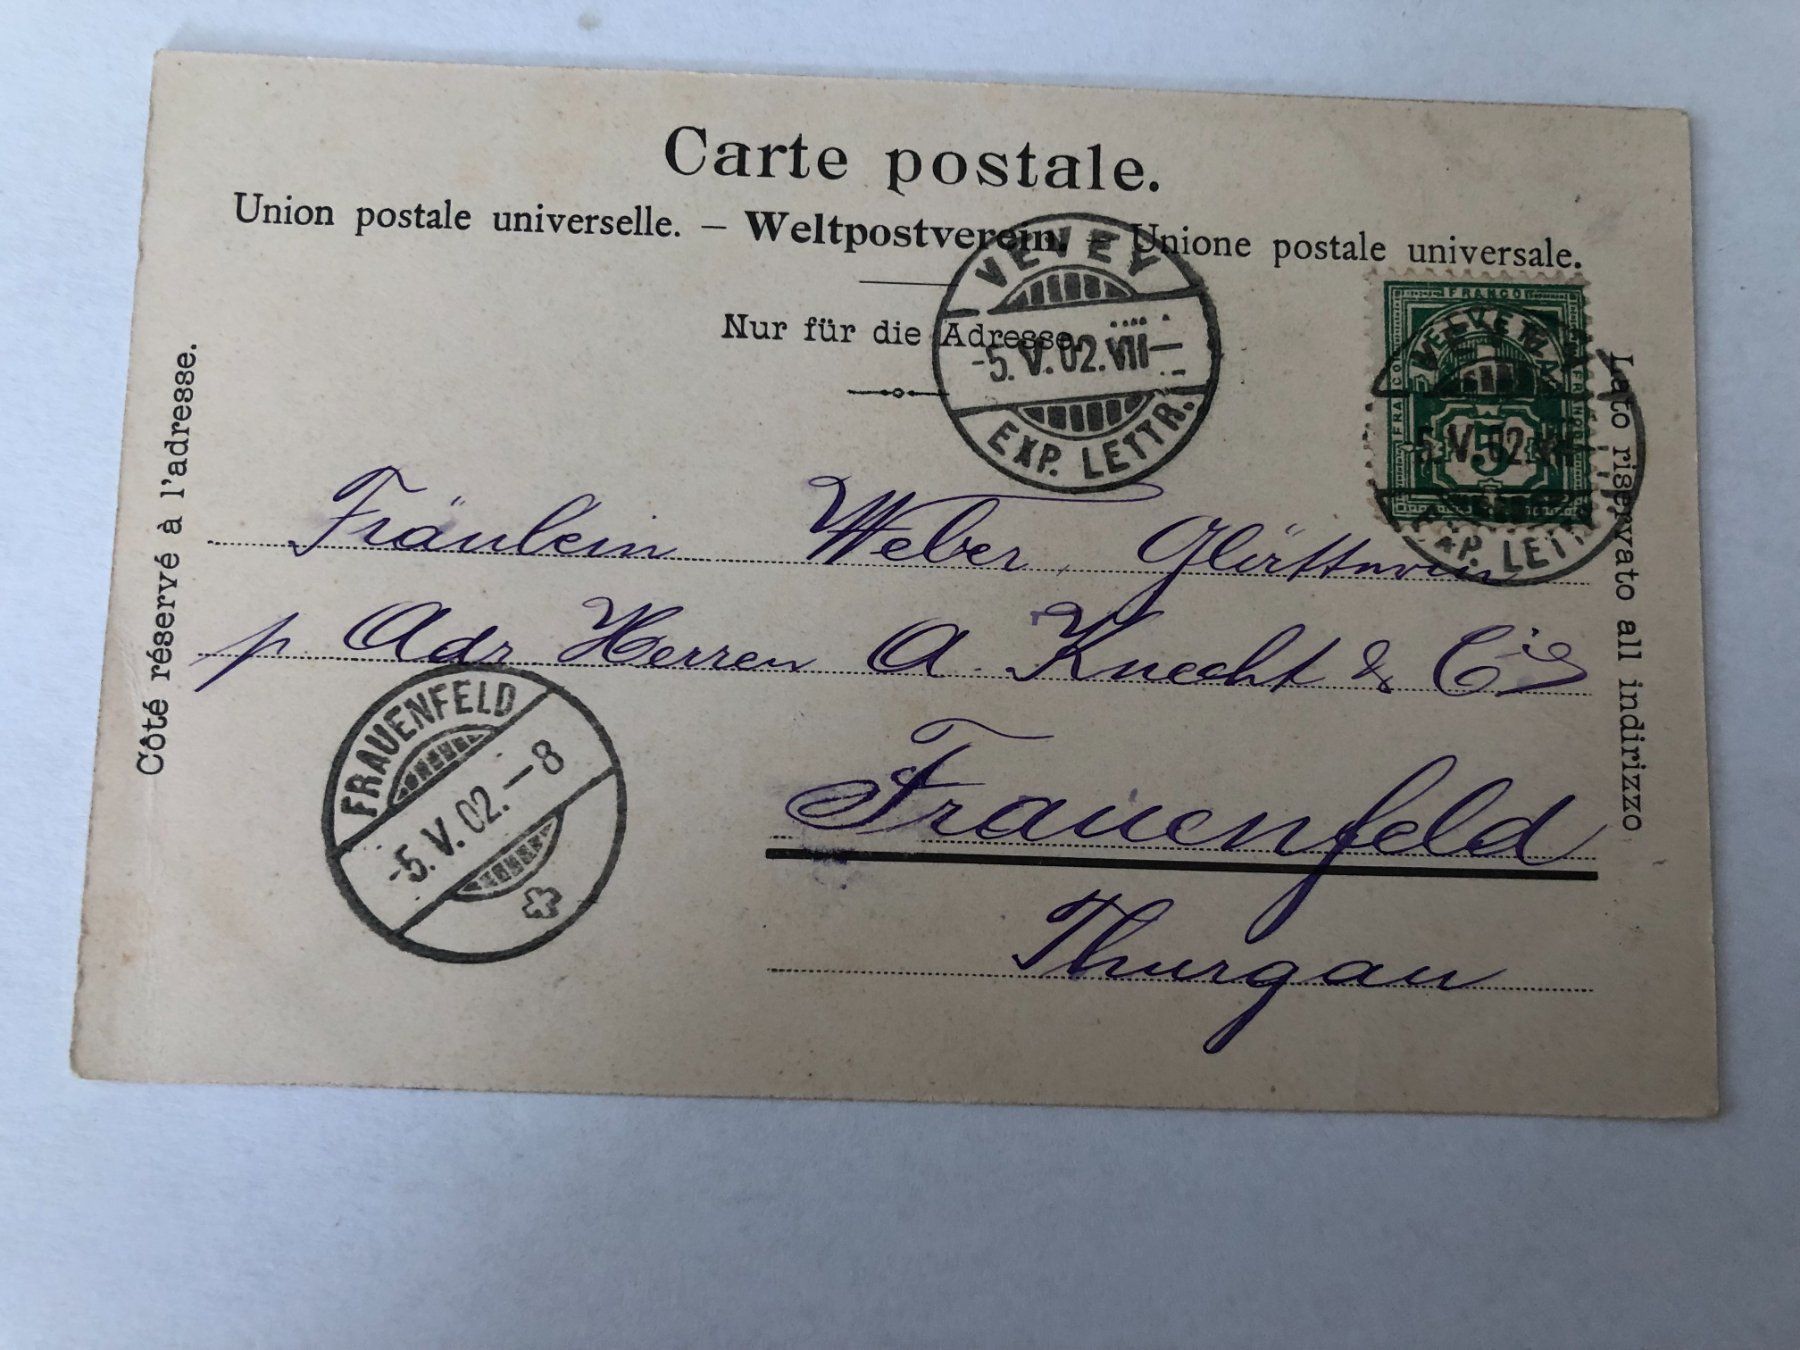 Carte postale.
Union postale universelle. – Weltpostverein. – Unione postale universale.
Nur für die Adresse.
Côté réservé à l'adresse.
Lato riservato all indirizzo
VEVEY
-5.V.02.VII—
EXP. LETTR.
FRANCO
5
5.V.02.
EXP. LETTR.
Fräulein Weber, Glätterin
p. Adr Herren A. Knecht & Cie
Frauenfeld
Thurgau
FRAUENFELD
-5.V.02.–8